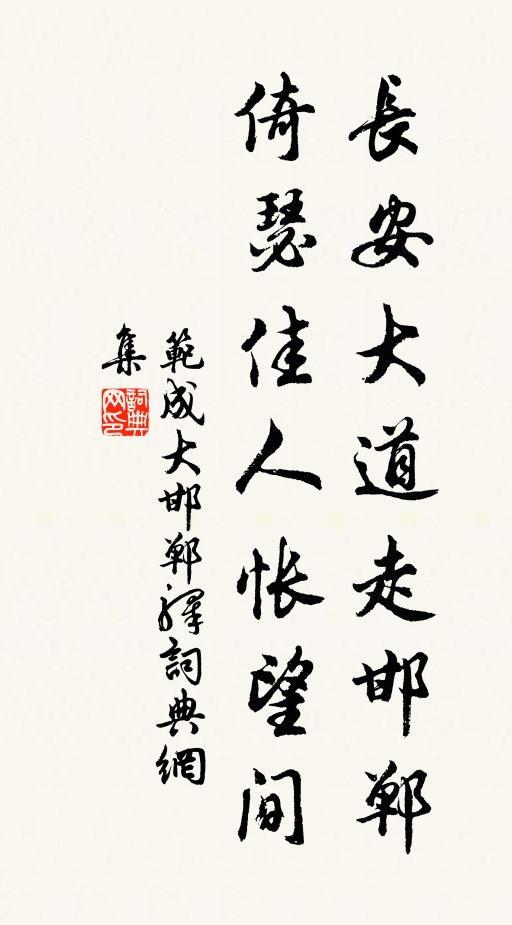 長安大道走邯鄲
倚瑟佳人悵望間
範成大邯鄲驛詞典網
集
詞典网印